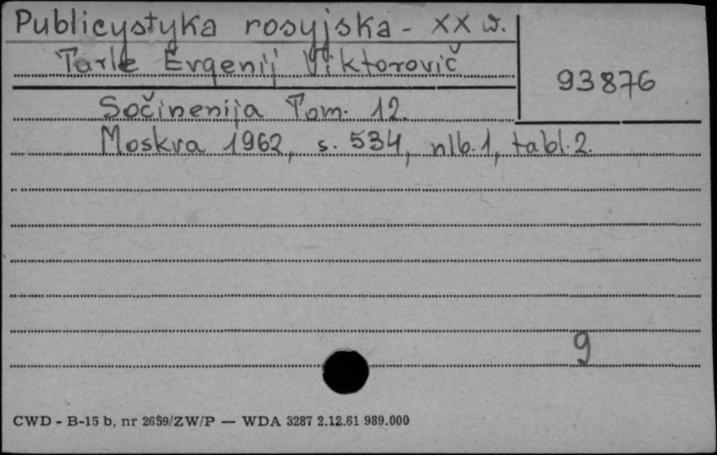 Publicystyka rosyjska - XX w.
Tarle Evgenij Viktorovič
93876
Sočinenija Tom. 12.
Moskva 1962, s. 534, nlb. 1, tabl. 2.
9
CWD - B-15 b, nr 2659/ZW/P — WDA 3287 2.12.61 989.000